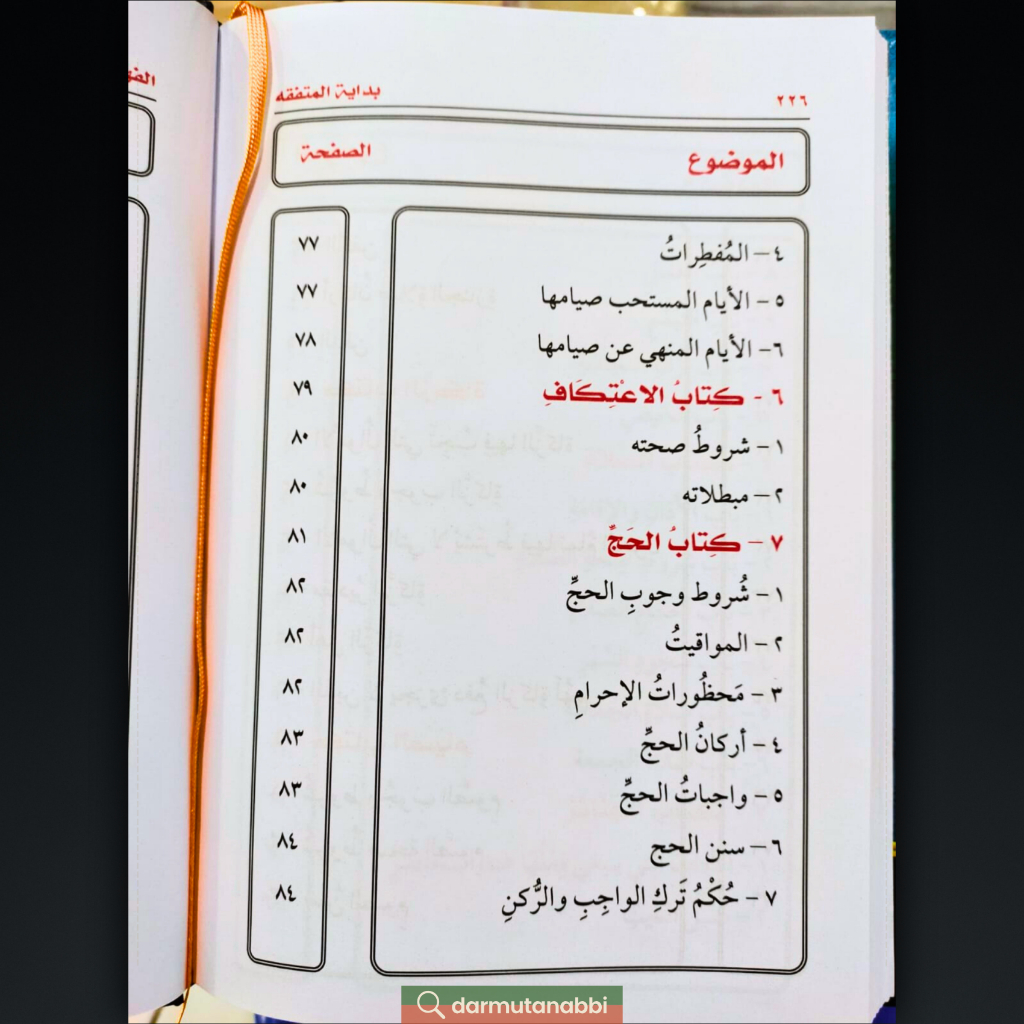 ٢٢٦ بداية المتفقه
الموضوع الصفحة
٤- المُفطِراتُ ٧٧
٥- الأيام المستحب صيامها ٧٧
٦- الأيام المنهي عن صيامها ٧٨
٦ - كِتابُ الاعْتِكَافِ ٧٩
١- شروطُ صحته ٨٠
٢- مبطلاته ٨٠
٧ - كِتابُ الحَجِّ ٨١
١- شُروط وجوبِ الحجِّ ٨٢
٢- المواقيتُ ٨٢
٣- مَحظُوراتُ الإحرامِ ٨٢
٤- أركانُ الحجِّ ٨٣
٥- واجباتُ الحجِّ ٨٣
٦- سنن الحج ٨٤
٧- حُكْمُ تَركِ الواجِبِ والرُّكنِ ٨٤
darmutanabbi